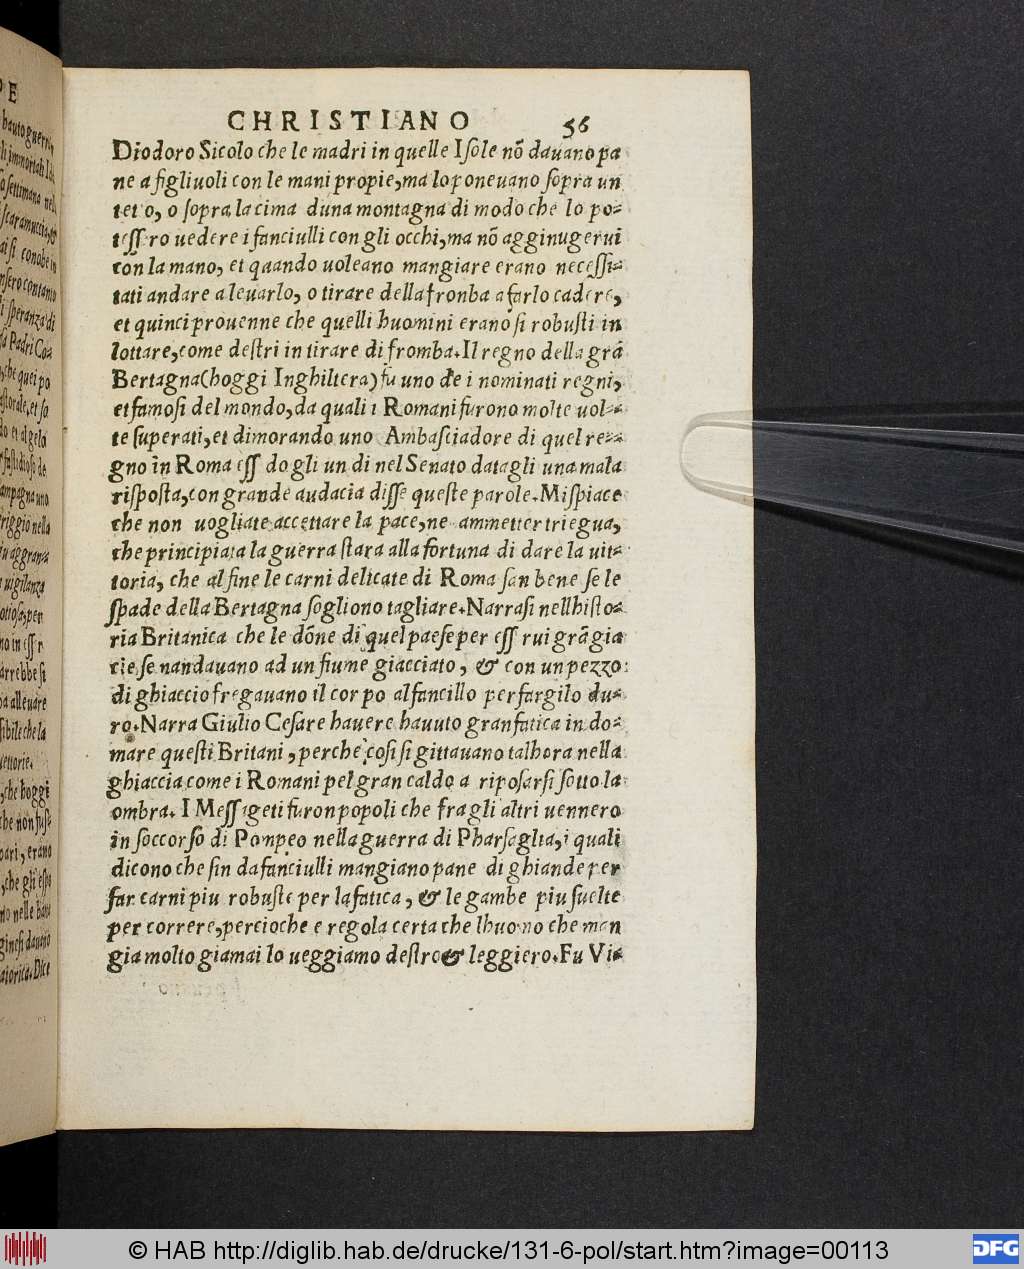 CHRISTIANO 56
Diodoro Sicolo che le madri in quelle Iſole nõ davano pa
ne a figlivoli con le mani propie, ma lo ponevano ſopra un
teto, o ſopra la cima duna montagna di modo che lo po-
teſſero uedere i fanciulli con gli occhi, ma nõ agginugerui
con la mano, et qaando uoleano mangiare erano neceſſi-
tati andare a leuarlo, o tirare della fronba a farlo cadere,
et quinci prouenne che quelli huomini erano ſi robuſti in
lottare, come deſtri in tirare di fromba. Il regno della grã
Bertagna (hoggi Inghiltera) fu uno de i nominati regni,
et famoſi del mondo, da quali i Romani furono molte uol-
te ſuperati, et dimorando uno Ambaſciadore di quel re-
gno in Roma eſſ do gli un di nel Senato datagli una mala
riſpoſta, con grande audacia diſſe queſte parole. Miſpiace
che non uogliate accettare la pace, ne ammetter triegua,
che principiata la guerra ſtara alla fortuna di dare la uit-
toria, che al fine le carni delicate di Roma ſan bene ſe le
ſpade della Bertagna ſogliono tagliare. Narraſi nellhiſto-
ria Britanica che le dõne di quel paeſe per eſſ rui grã gia
cie ſe nandauano ad un fiume giacciato, & con un pezzo
di ghiaccio fregauano il corpo al fancillo per fargilo du-
ro. Narra Giulio Ceſare hauere hauuto gran fatica in do-
mare queſti Britani, perche coſi ſi gittauano talhora nella
ghiaccia come i Romani pel gran caldo a ripoſarſi ſotto la
ombra. I Meſſigeti furon popoli che fra gli altri uennero
in ſoccorſo di Pompeo nella guerra di Pharſaglia, i quali
dicono che ſin da fanciulli mangiano pane di ghiande per
far carni piu robuſte per la fatica, & le gambe piu ſuelte
per correre, percioche e regola certa che lhuomo che man
gia molto giamai lo ueggiamo deſtro & leggiero. Fu Vi-
© HAB http://diglib.hab.de/drucke/131-6-pol/start.htm?image=00113
DFG